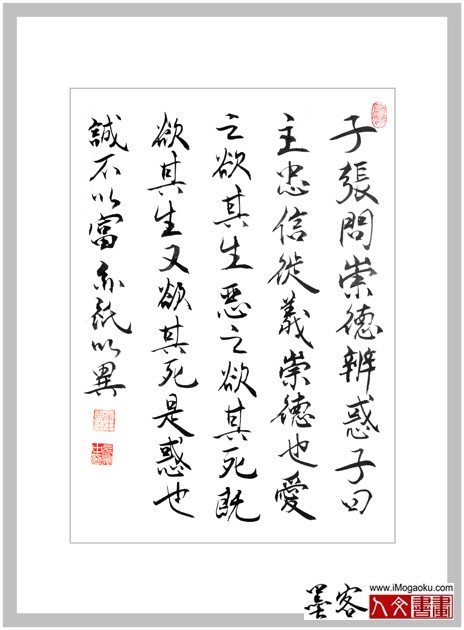 子張問崇德辨惑子曰
主忠信徙義崇德也愛
之欲其生惡之欲其死既
欲其生又欲其死是惑也
誠不以富亦祇以異
墨客
www.iMogaoku.com
人文書畫